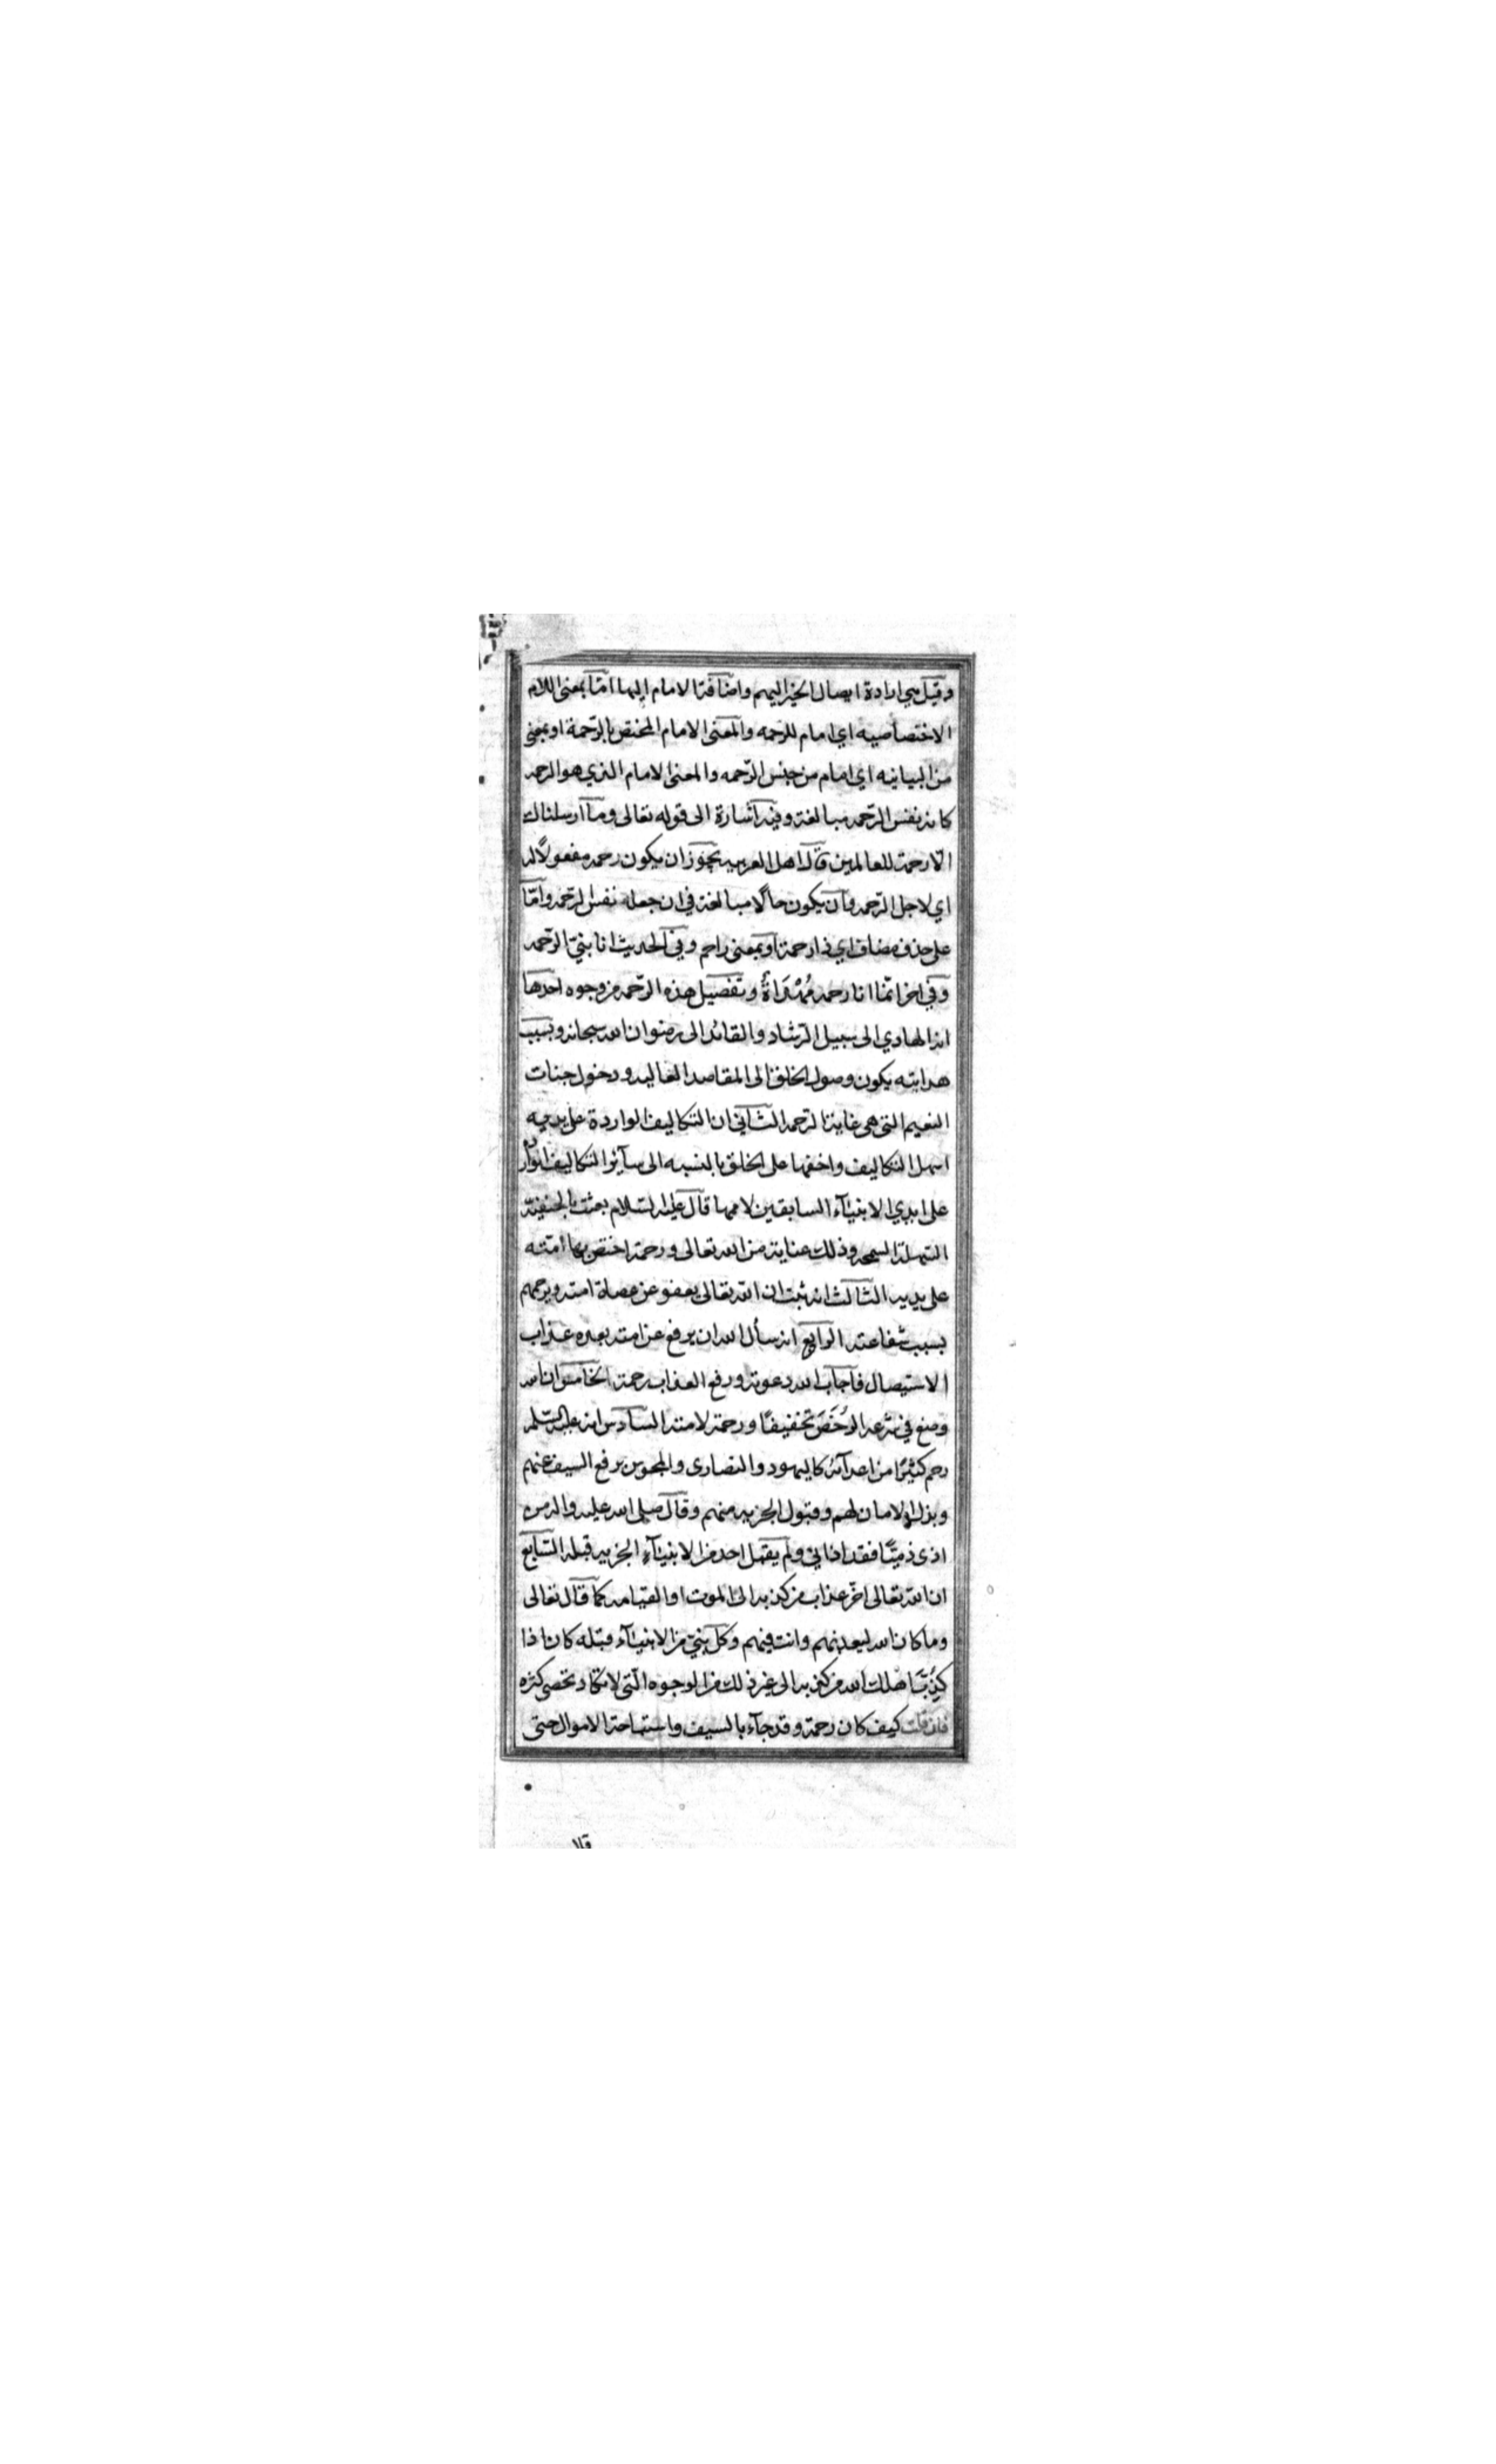 وقيل هي ارادة ايصال الخير اليهم واضافة الامام اليها امّا بمعنى اللام
الاختصاصيه اي امام للرحمه والمعنى الامام المختص بالرّحمة او بمعنى
من البيانيه اي امام من جنس الرّحمه والمعنى الامام الذي هو الرحمه
كانه نفس الرّحمه مبالغة وفيه اشارة الى قوله تعالى وما ارسلناك
الّا رحمة للعالمين قال اهل العربيه يجوز ان يكون رحمه مفعولًا له
اي لاجل الرّحمه وان يكون حالًا مبالغة في ان جعله نفس الرّحمه وامّا
على حذف مضاف اي ذا رحمة او بمعنى راحم وفي الحديث انا نبيّ الرّحمه
وفي اخر انّما انا رحمه مُهْدَاةٌ وتفصيل هذه الرّحمه من وجوه احدها
انه الهادي الى سبيل الرّشاد والقائد الى رضوان الله سبحانه وبسبب
هدايته يكون وصول الخلق الى المقاصد العاليه ودخول جنات
النعيم التي هي غاية الرّحمه الثّاني ان التكاليف الواردة على يديه
اسهل التكاليف واخفها على الخلق بالنسبه الى سآئر التكاليف الوارده
على ايدي الانبيآء السابقين لاممها قال عليه السّلام بعثت بالحنيفيّة
السّهلة السمحه وذلك عناية من الله تعالى ورحمة اختص بها امّته
على يديه الثّالث انه ثبت ان الله تعالى يعفو عن عصاة امته ويرحمهم
بسبب شفاعته الرّابع انه سأل الله ان يرفع عن امته بعده عذاب
الاستيصال فاجاب الله دعوته ورفع العذاب رحمة الخامس ان الله
وضع في شرعه الرُخَصَ تخفيفًا ورحمة لامته السادس انه عليه السّلم
رحم كثيرًا من اعدآئه كاليهود والنصارى والمجوس برفع السيف عنهم
وبذل الامان لهم وقبول الجزيه منهم وقال صلى الله عليه واله من
اذى ذميًّا فقد اذاني ولم يقبل احد من الانبيآء الجزيه قبله السّابع
ان الله تعالى اخّر عذاب من كذبه الى الموت او القيامه كما قال تعالى
وما كان الله ليعذبهم وانت فيهم وكل نبيّ من الانبيآء قبله كان اذا
كُذِّبَ اهلك الله من كذبه الى غير ذلك من الوجوه الّتي لا تكاد تحصى كثره
فان قلت كيف كان رحمة وقد جآء بالسيف واستباحة الاموال حتى